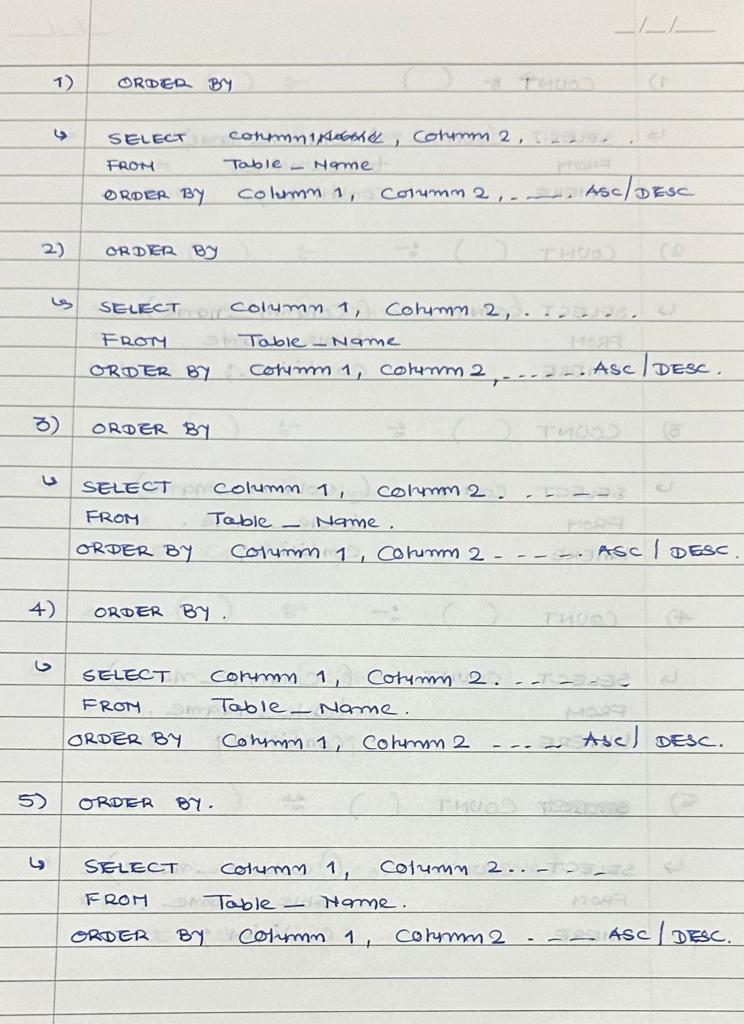 _/_/__
1) ORDER BY
↳ SELECT column1, Column 2, ......
FROM Table_Name
ORDER BY Column 1, Column 2, ..... ASC/DESC
2) ORDER BY
↳ SELECT Column 1, Column 2, .......
FROM Table_Name
ORDER BY Column 1, Column 2, ...... ASC/DESC.
3) ORDER BY
↳ SELECT Column 1, Column 2. .----
FROM Table_Name.
ORDER BY Column 1, Column 2 ----. ASC/DESC.
4) ORDER BY.
↳ SELECT Column 1, Column 2. .-----
FROM Table_Name.
ORDER BY Column 1, Column 2 ---- ASC/DESC.
5) ORDER BY.
↳ SELECT Column 1, Column 2..---
FROM Table_Name.
ORDER BY Column 1, Column 2 .--- ASC/DESC.